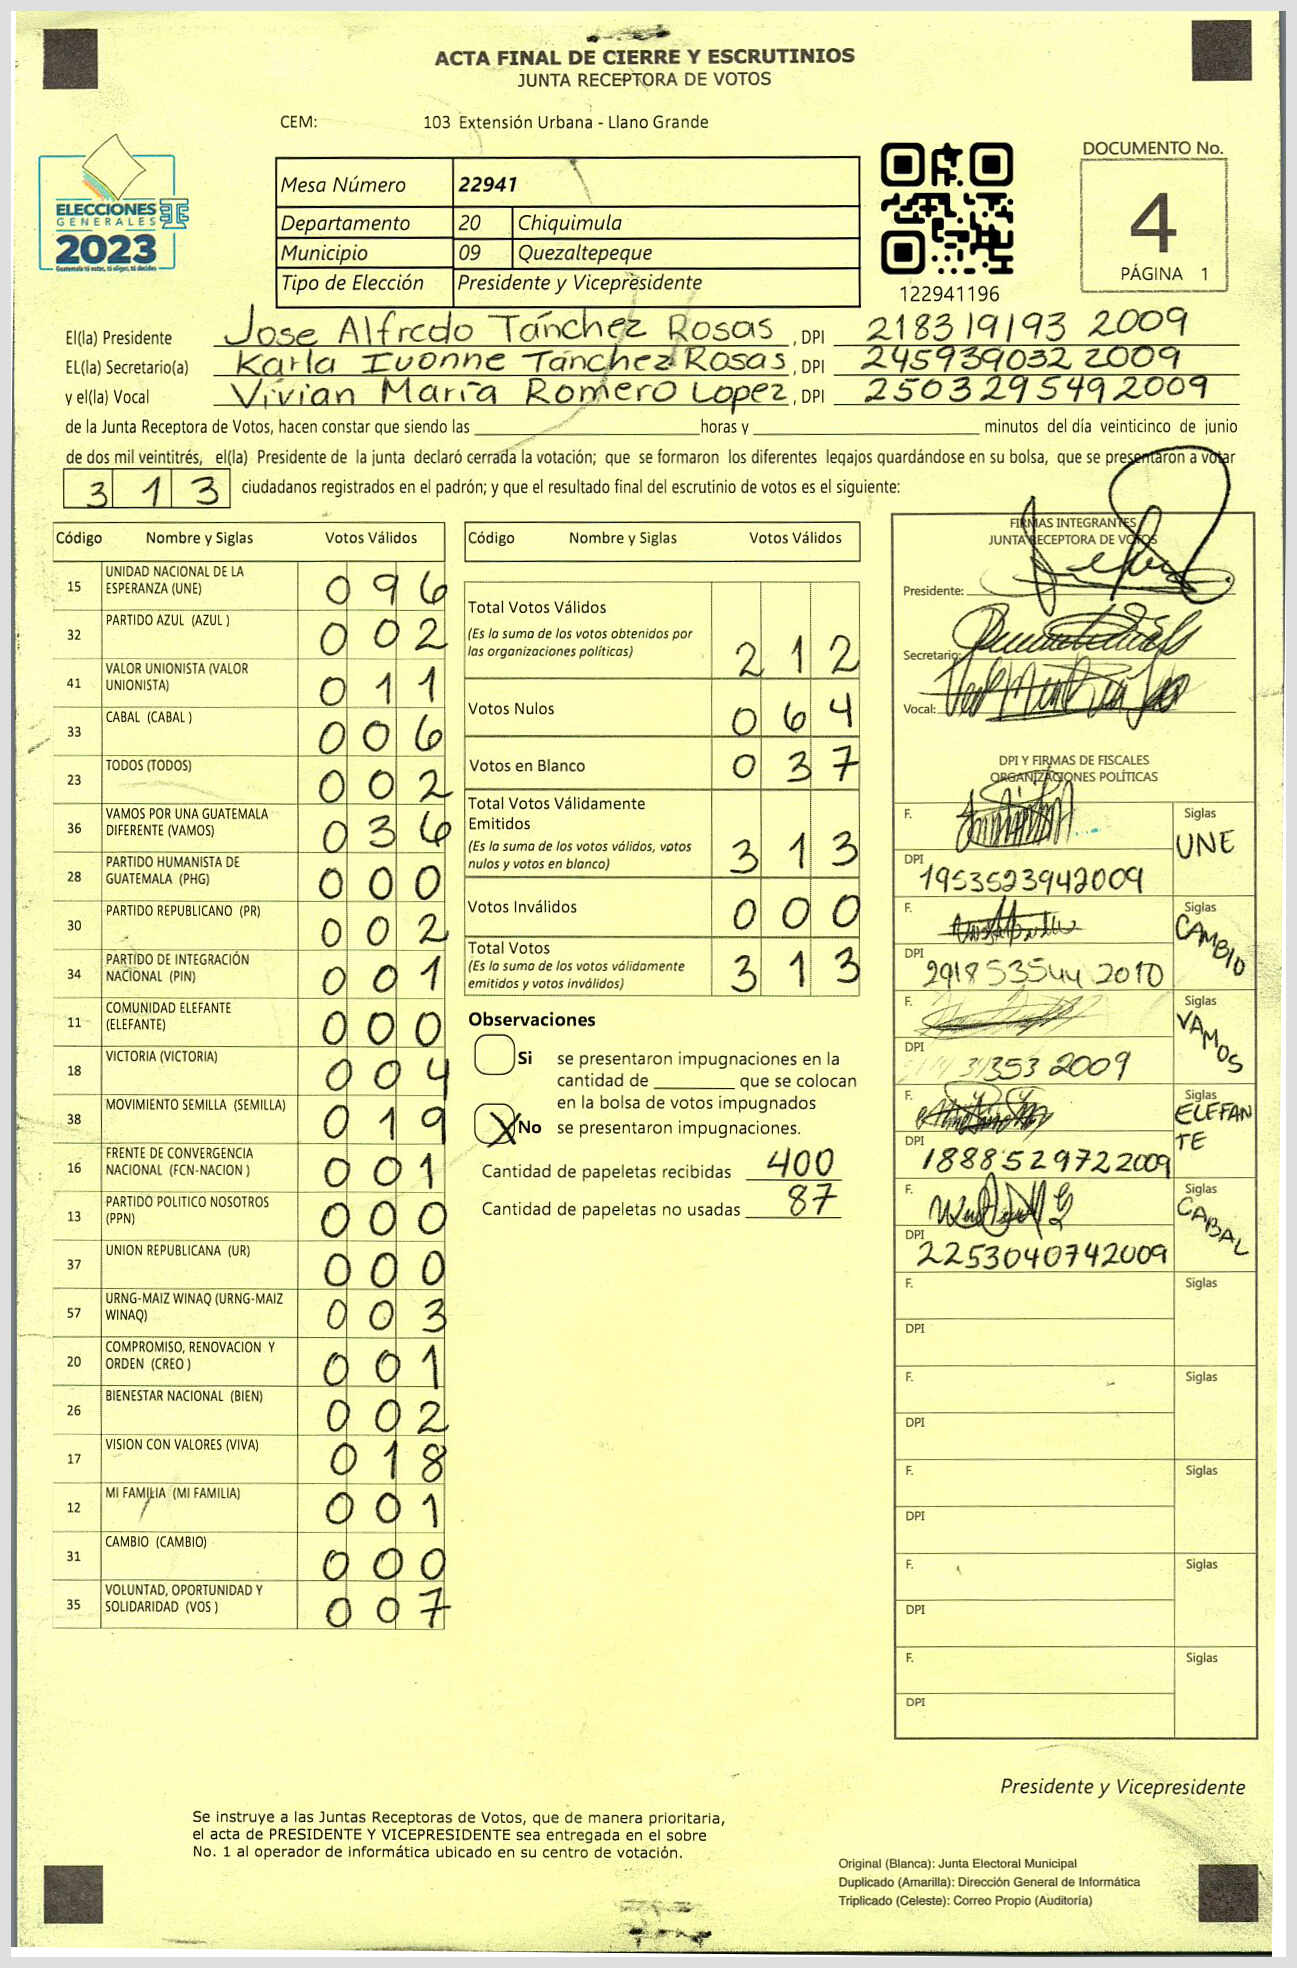 ACTA FINAL DE CIERRE Y ESCRUTINIOS
JUNTA RECEPTORA DE VOTOS
CEM: 103 Extensión Urbana - Llano Grande
DOCUMENTO No.
4
PÁGINA 1
ELECCIONES
GENERALES
2023
Guatemala tú votas, tú eliges, tú decides
Mesa Número 22941
Departamento 20 Chiquimula
Municipio 09 Quezaltepeque
Tipo de Elección Presidente y Vicepresidente
122941196
El(la) Presidente Jose Alfredo Tánchez Rosas, DPI 218319193 2009
EL(la) Secretario(a) Karla Ivonne Tánchez Rosas, DPI 245939032 2009
y el(la) Vocal Vivian María Romero Lopez, DPI 2503295492009
de la Junta Receptora de Votos, hacen constar que siendo las ____ horas y ____ minutos del día veinticinco de junio
de dos mil veintitrés, el(la) Presidente de la junta declaró cerrada la votación; que se formaron los diferentes legajos guardándose en su bolsa, que se presentaron a votar
3 1 3 ciudadanos registrados en el padrón; y que el resultado final del escrutinio de votos es el siguiente:
Código Nombre y Siglas Votos Válidos
15 UNIDAD NACIONAL DE LA ESPERANZA (UNE) 0 9 6
32 PARTIDO AZUL (AZUL ) 0 0 2
41 VALOR UNIONISTA (VALOR UNIONISTA) 0 1 1
33 CABAL (CABAL ) 0 0 6
23 TODOS (TODOS) 0 0 2
36 VAMOS POR UNA GUATEMALA DIFERENTE (VAMOS) 0 3 6
28 PARTIDO HUMANISTA DE GUATEMALA (PHG) 0 0 0
30 PARTIDO REPUBLICANO (PR) 0 0 2
34 PARTIDO DE INTEGRACIÓN NACIONAL (PIN) 0 0 1
11 COMUNIDAD ELEFANTE (ELEFANTE) 0 0 0
18 VICTORIA (VICTORIA) 0 0 4
38 MOVIMIENTO SEMILLA (SEMILLA) 0 1 9
16 FRENTE DE CONVERGENCIA NACIONAL (FCN-NACION ) 0 0 1
13 PARTIDO POLITICO NOSOTROS (PPN) 0 0 0
37 UNION REPUBLICANA (UR) 0 0 0
57 URNG-MAIZ WINAQ (URNG-MAIZ WINAQ) 0 0 3
20 COMPROMISO, RENOVACION Y ORDEN (CREO ) 0 0 1
26 BIENESTAR NACIONAL (BIEN) 0 0 2
17 VISION CON VALORES (VIVA) 0 1 8
12 MI FAMILIA (MI FAMILIA) 0 0 1
31 CAMBIO (CAMBIO) 0 0 0
35 VOLUNTAD, OPORTUNIDAD Y SOLIDARIDAD (VOS ) 0 0 7
Código Nombre y Siglas Votos Válidos
Total Votos Válidos
(Es la suma de los votos obtenidos por
las organizaciones políticas) 2 1 2
Votos Nulos 0 6 4
Votos en Blanco 0 3 7
Total Votos Válidamente
Emitidos
(Es la suma de los votos válidos, votos
nulos y votos en blanco) 3 1 3
Votos Inválidos 0 0 0
Total Votos
(Es la suma de los votos válidamente
emitidos y votos inválidos) 3 1 3
Observaciones
Si se presentaron impugnaciones en la
cantidad de ____ que se colocan
en la bolsa de votos impugnados
X No se presentaron impugnaciones.
Cantidad de papeletas recibidas 400
Cantidad de papeletas no usadas 87
FIRMAS INTEGRANTES
JUNTA RECEPTORA DE VOTOS
Presidente:
Secretario:
Vocal:
DPI Y FIRMAS DE FISCALES
ORGANIZACIONES POLÍTICAS
F. Siglas UNE
DPI 1953523942009
F. Siglas CAMBIO
DPI 291853544 2010
F. Siglas VAMOS
DPI 353 2009
F. Siglas ELEFANTE
DPI 1888529722009
F. Siglas CABAL
DPI 2253040742009
F. Siglas
DPI
F. Siglas
DPI
F. Siglas
DPI
F. Siglas
DPI
F. Siglas
DPI
Presidente y Vicepresidente
Se instruye a las Juntas Receptoras de Votos, que de manera prioritaria,
el acta de PRESIDENTE Y VICEPRESIDENTE sea entregada en el sobre
No. 1 al operador de informática ubicado en su centro de votación.
Original (Blanca): Junta Electoral Municipal
Duplicado (Amarilla): Dirección General de Informática
Triplicado (Celeste): Correo Propio (Auditoría)